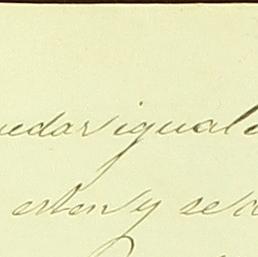 uedar igual
esten y se